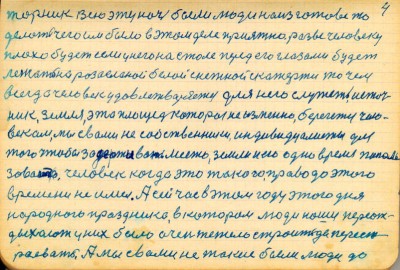 4
торник всю эту ночь были люди на изготове то
делот чего им было в этом деле приятно, разве человеку
плохо будет если у него на столе пред его глазами будет
лежать на розасланой белой снежной скатерти то чем
всегда человек удовлетворяется для него служет источ-
ник, земля, эта площед которая не изменно, бережет чло-
века, мы с вами не собственники, индивидуалисты для
того чтобы место, земли на одно время
человек когда это такого право до этого
времени не имел. А сейчас в этом году этого дня
народного праздника, в котором люди наши
у них было очен тежело строить да
А мы с вами не такие были люди до